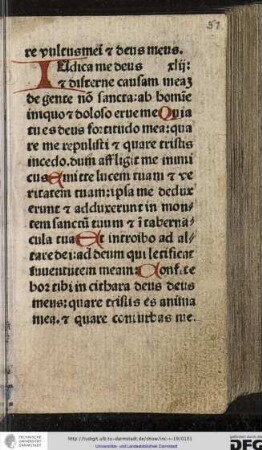 51
re vultus mei ⁊ deus meus.
IUdica me deus xlij:
⁊ discerne causam meaꝫ
de gente nō sancta: ab homīe
iniquo ⁊ doloso erue me Quia
tu es deus fortitudo mea: qua
re me repulisti ⁊ quare tristis
incedo. dum affligit me inimi
cus Emitte lucem tuam ⁊ ve
ritatem tuam: ipsa me dedux
erunt ⁊ adduxerunt in mon-
tem sanctū tuum ⁊ ī taberna-
cula tua Et introibo ad al-
tare dei: ad deum qui letificat
iuventutem meam: Confite
bor tibi in cithara deus deus
meus: quare tristis es anima
mea. ⁊ quare conturbas me.
TECHNISCHE UNIVERSITÄT DARMSTADT
http://tudigit.ulb.tu-darmstadt.de/show/inc-i-18/0101
Universitäts- und Landesbibliothek Darmstadt
DFG